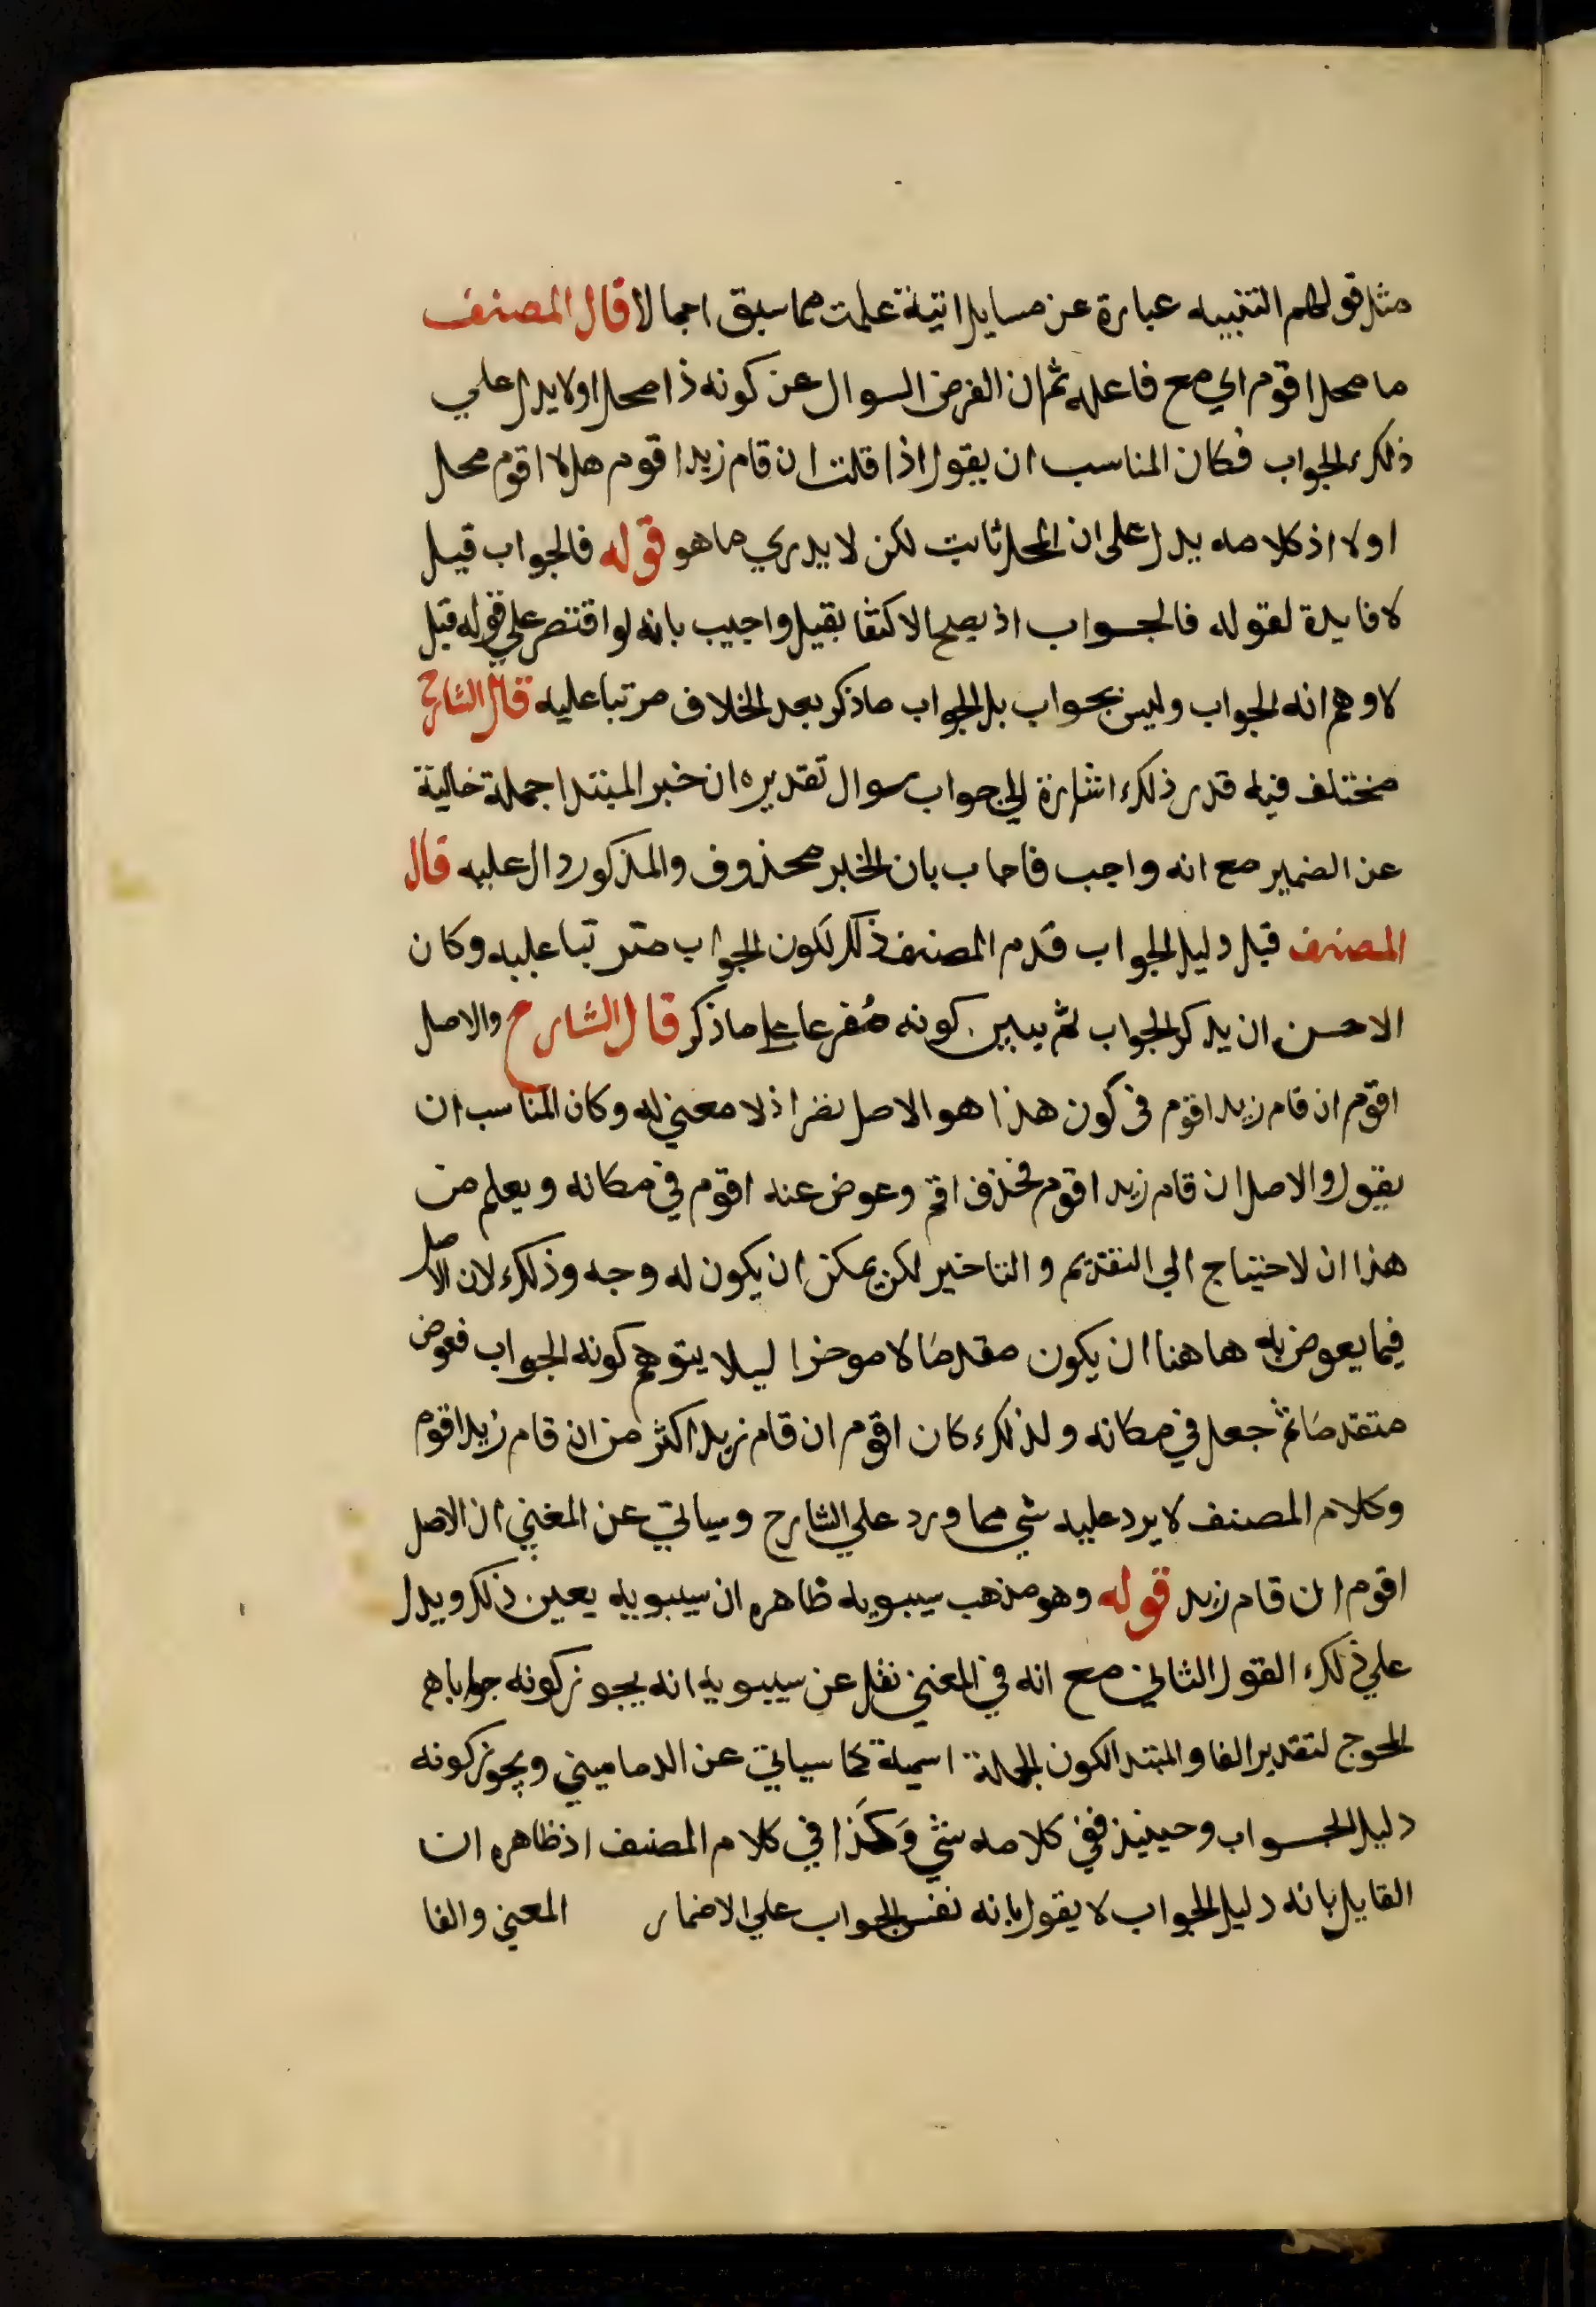 مثل قولهم التنبيه عبارة عن مسايل اتية علمت مما سبق اجمالا قال المصنف
ما محل اقوم اي مع فاعله ثم ان الغرض السوال عن كونه ذا محل اولا يدل علي
ذلك الجواب فكان المناسب ان يقول اذا قلت ان قام زيد اقوم هل لا اقوم محل
اولا اذ كلامه يدل على ان المحل ثابت لكن لا يدري ما هو قوله فالجواب قيل
لا فايدة لقوله فالجواب اذ يصح الاكتفا بقيل واجيب بانه لو اقتصر علي قوله قيل
لاوهم انه الجواب وليس بجواب بل الجواب ما ذكر بعد الخلاف مرتبا عليه قال الشارح
مختلف فيه قدر ذلك اشارة الي جواب سوال تقديره ان خبر المبتدا جملة خالية
عن الضمير مع انه واجب فاجاب بان الخبر محذوف والمذكور دال عليه قال
المصنف قيل دليل الجواب قدم المصنف ذلك لكون الجواب مترتبا عليه وكان
الاحسن ان يذكر الجواب ثم يبين كونه مُفرعا علي ما ذكر قال الشارح والاصل
اقوم ان قام زيد اقوم في كون هذا هو الاصل نظر اذ لا معني له وكان المناسب ان
يقول والاصل ان قام زيد اقوم فحذف اقم وعوض عنه اقوم في مكانه ويعلم من
هذا ان لا حتياج الي التقديم والتاخير لكن يمكن ان يكون له وجه وذلك لان الاصل
فيما يعوض به هاهنا ان يكون مقدمًا لا موخرا ليلا يتوهم كونه الجواب فعوض
متقدمًا ثم جعل في مكانه ولذلك كان اقوم ان قام زيد اكثر من ان قام زيد اقوم
وكلام المصنف لا يرد عليه شي مما ورد علي الشارح وسياتي عن المغني ان الاصل
اقوم ان قام زيد قوله وهو مذهب سيبويه ظاهره ان سيبويه يعين ذلك ويدل
علي ذلك القول الثاني مع انه في المغني نقل عن سيبويه انه يجوز كونه جوابا هم
المحوج لتقدير الفا والمبتدا لكون الجملة اسمية كما سياتي عن الدماميني ويجوز كونه
دليل الجواب وحينيذ ففي كلامه شي وَكَذا في كلام المصنف اذ ظاهره ان
القايل بانه دليل الجواب لا يقول بانه نفس الجواب علي الاضمار المعني والفا